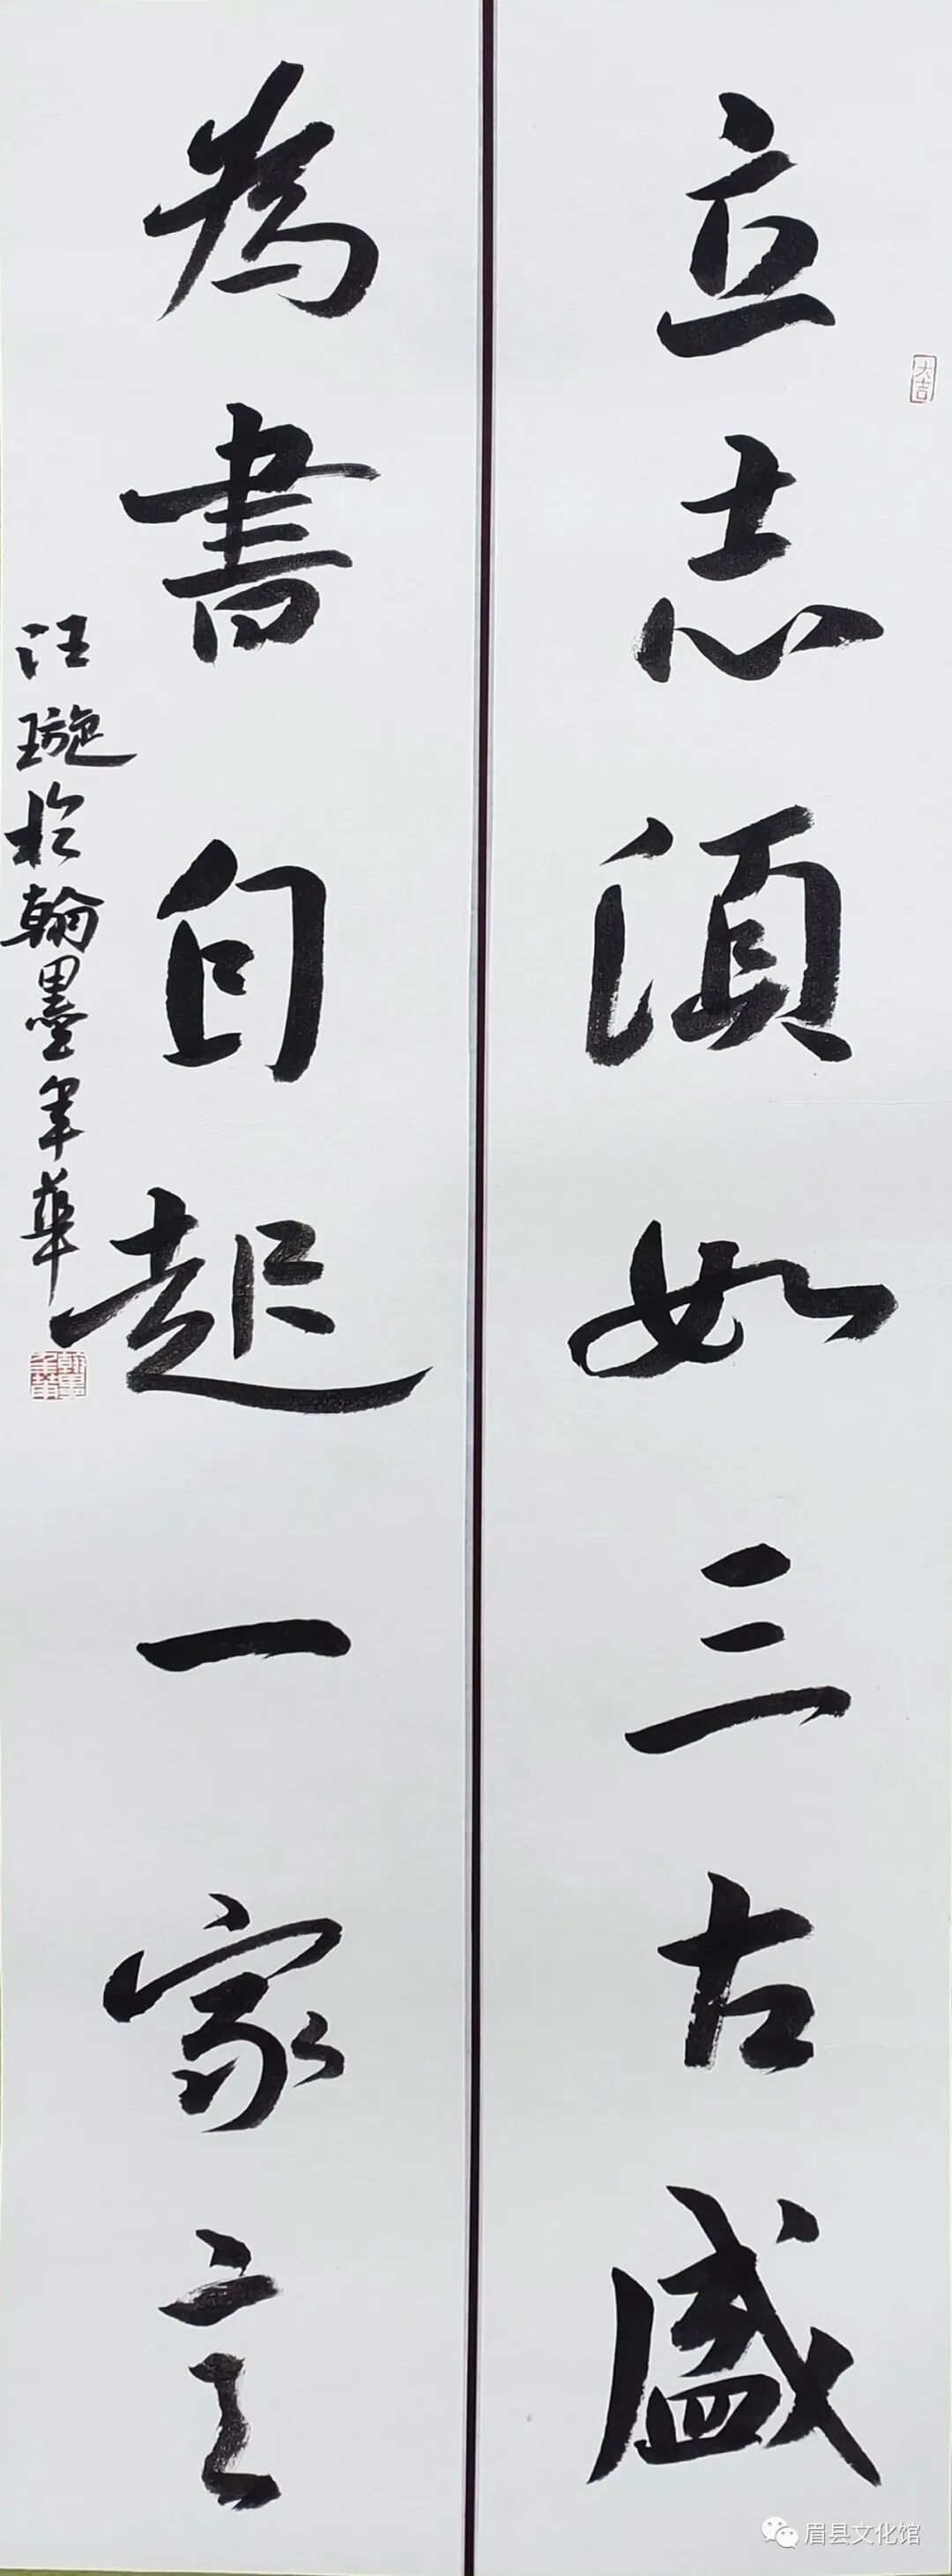 立志須如三古盛
大吉
為書自起一家言
汪璇於翰墨年華
眉县文化馆